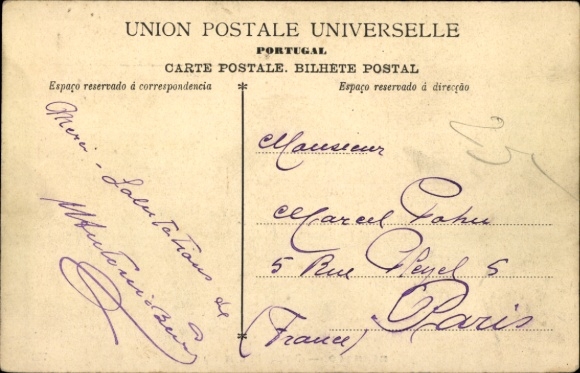 UNION POSTALE UNIVERSELLE
PORTUGAL
CARTE POSTALE. BILHETE POSTAL
Espaço reservado á correspondencia
Espaço reservado á direcção
Merci - Salutations de
Monsieur
Marcel
5 Rue Pleyel 5
Paris
(France)